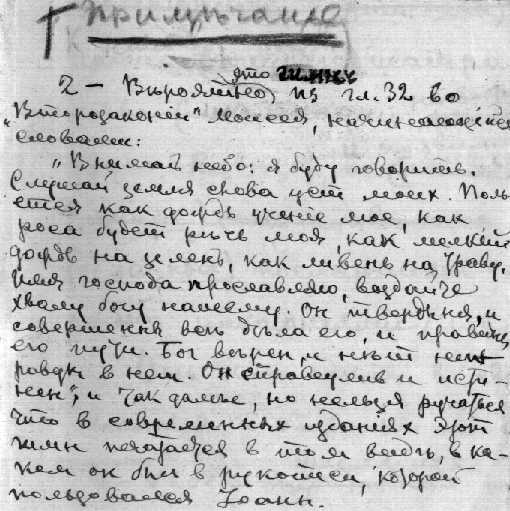 Примѣчанiе
это
2 – Вѣроятно, из гл. 32 во
„Второзаконiи" Моисея, начинающейся
словами:
„Внимай небо: я буду говорить.
Слушай земля слова уст моих. Поль-
ется как дождь ученiе мое, как
роса будет рѣчь моя, как мелкiй
дождь на зелень, как ливень на траву.
Имя господа прославляю, воздайте
хвалу богу нашему. Он твердыня, и
совершенны всѣ дѣла его, и праведны
его пути. Бог вѣрен, и нѣт не-
правды в нем. Он справедлив и исти-
нен", и так далѣе, но нельзя ручаться
что в современных изданiях этот
гимн печатается в том видѣ, в ка-
ком он был в рукописи, которой
пользовался Iоанн.